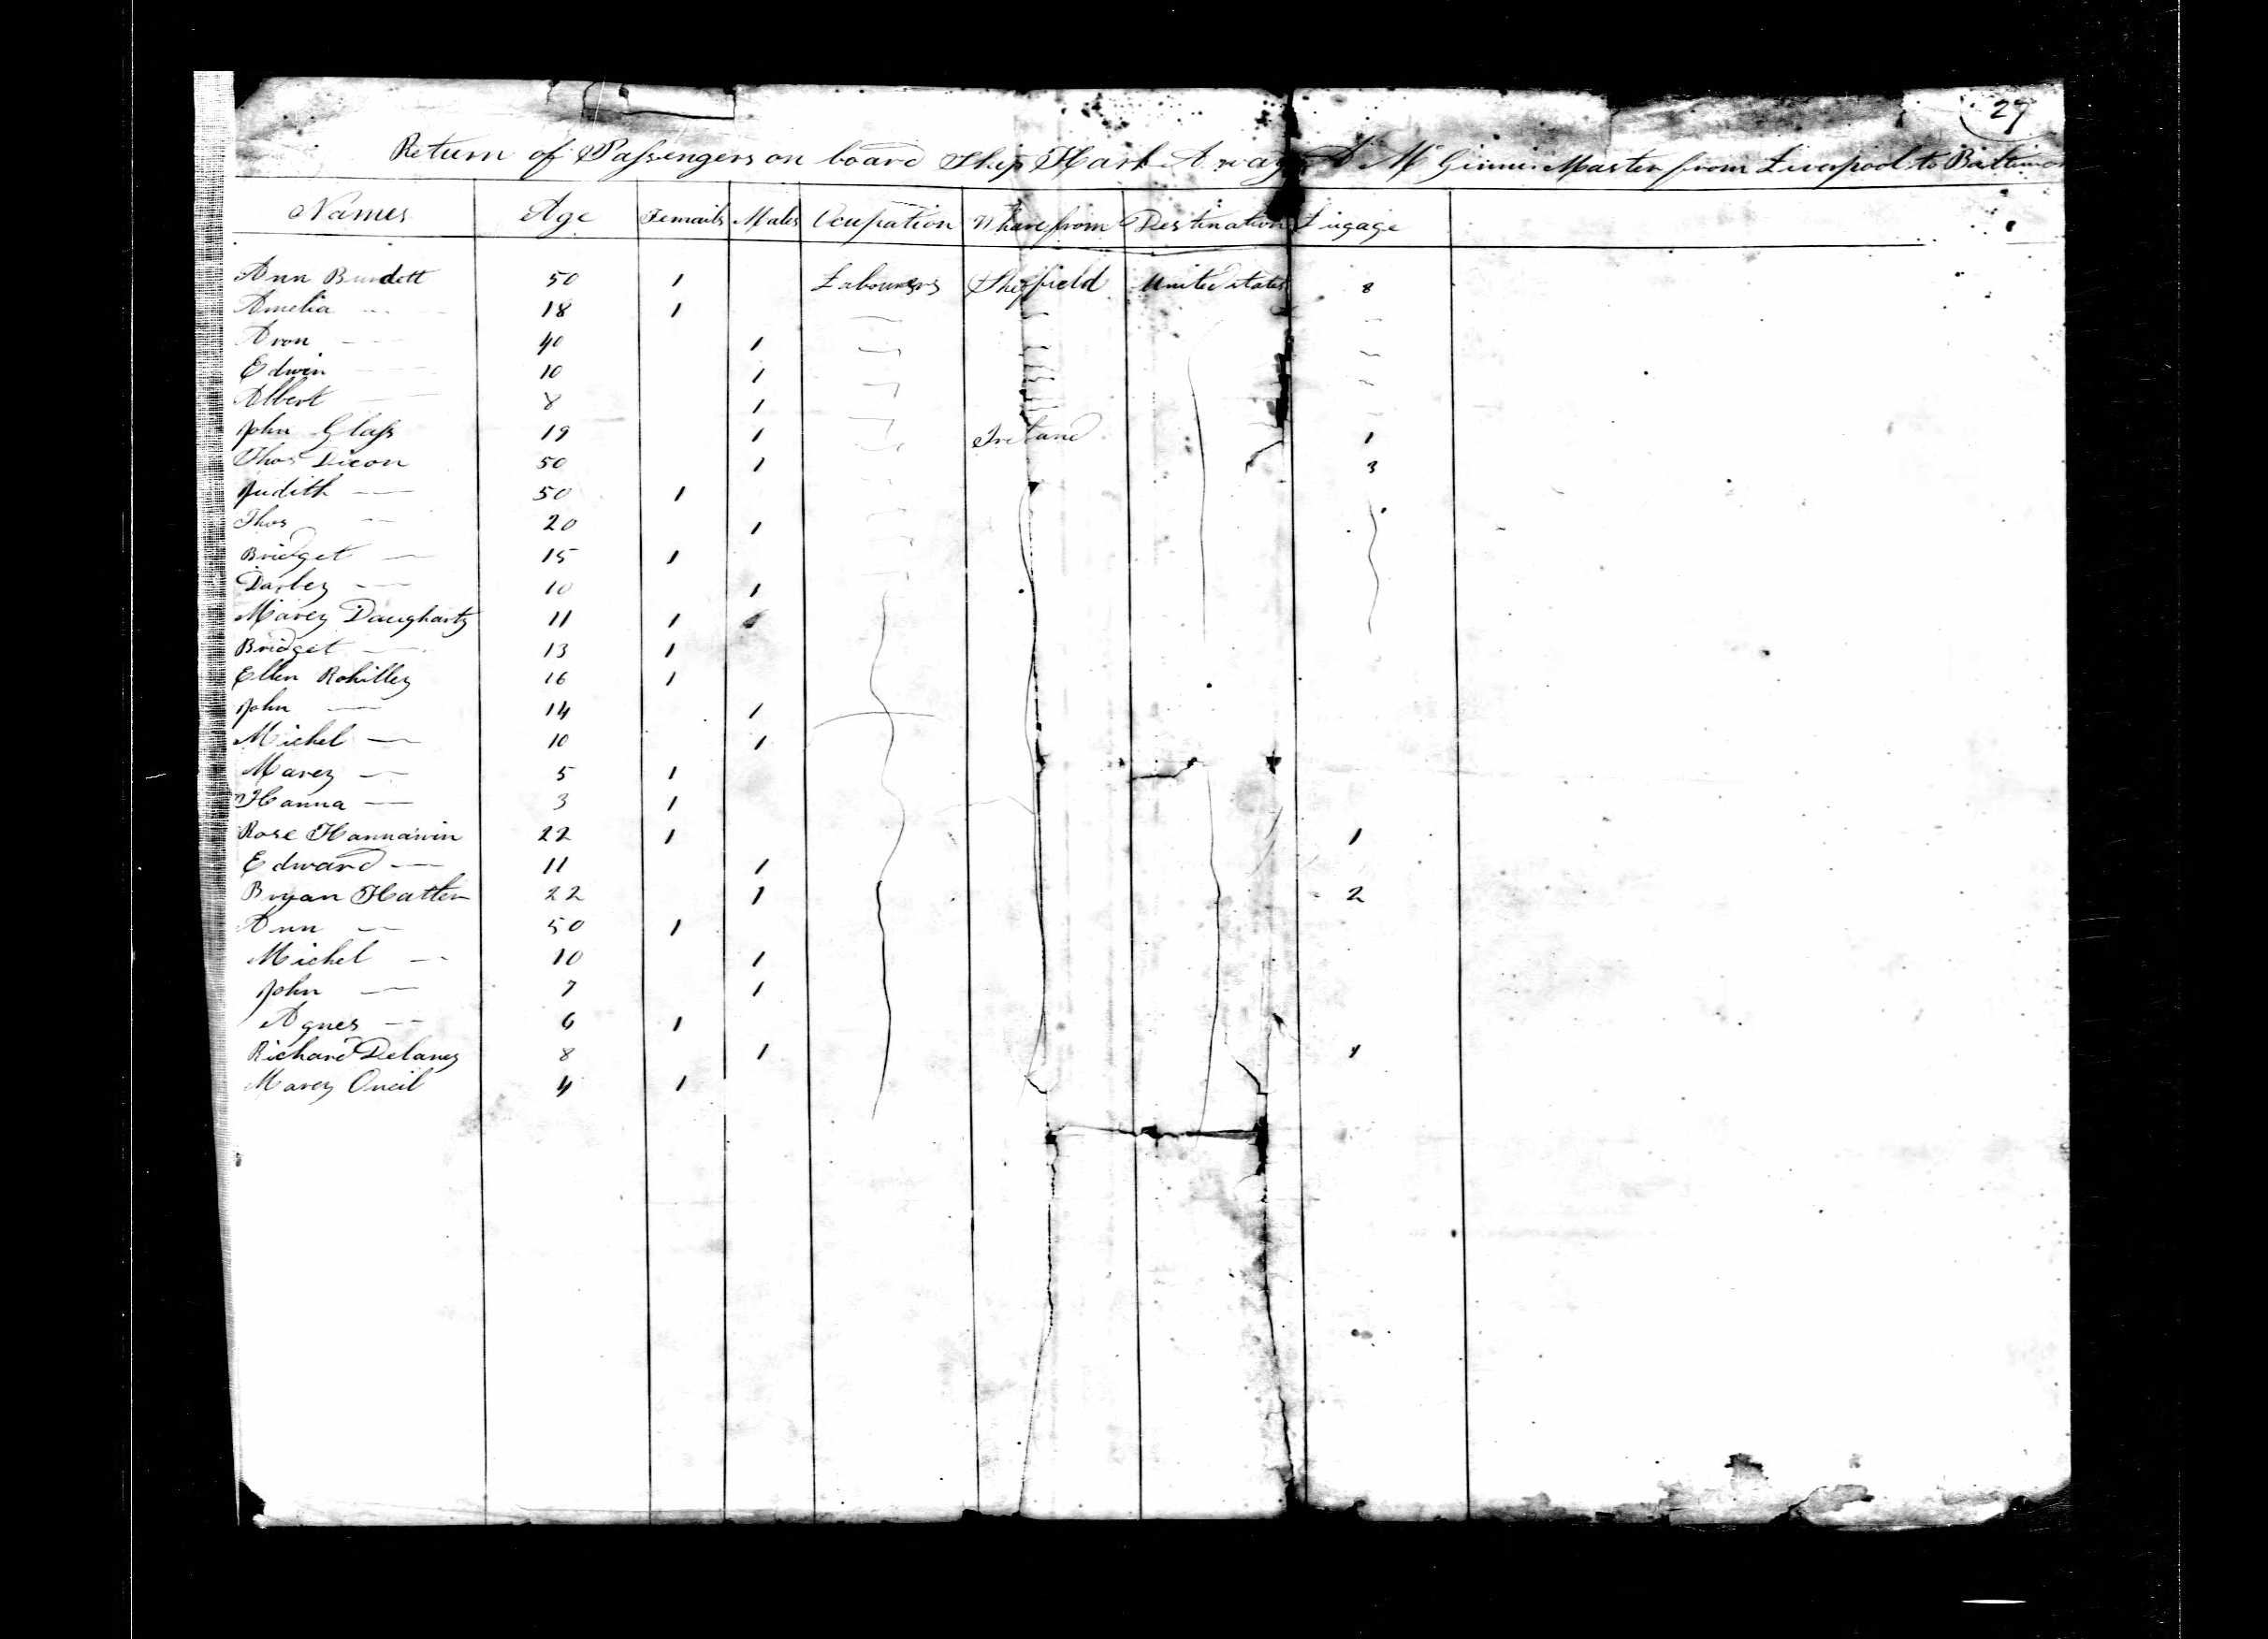 29
Return of Passengers on board Ship Hark Away A Mc Ginnis Master from Liverpool to Baltimor
Names Age Femails Males Ocupation Whare from Destination Lugage
Ann Burdett 50 1 Labourers Sheffield United states 8
Amelia — 18 1
Aron — 40 1
Edwin — 10 1
Albert — 8 1
John Glass 19 1 Ireland 1
Thos Dicon 50 1 3
Judith — 50 1
Thos — 20 1
Bridget — 15 1
Darbey — 10 1
Marey Daugharty 11 1
Bridget — 13 1
Ellen Rohilley 16 1
John — 14 1
Michel — 10 1
Marey — 5 1
Hanna — 3 1
Rose Hannawin 22 1 1
Edward — 11 1
Bryan Hatten 22 1 2
Ann — 50 1
Michel — 10 1
John — 7 1
Agnes — 6 1
Richard Delaney 8 1 1
Marey Oneil 4 1